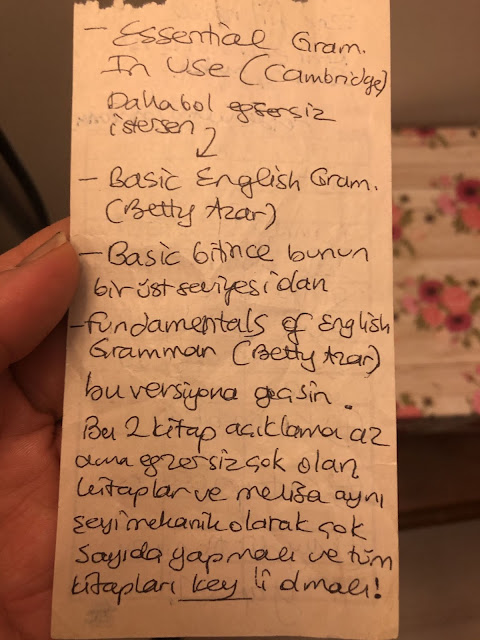 - Essential Gram.
In Use (Cambridge)
Daha bol egzersiz
istersen
- Basic English Gram.
(Betty Azar)
- Basic bitince bunun
bir üst seviyesi olan
- Fundamentals of English
Grammar (Betty Azar)
bu versiyona geçsin.
Bu 2 kitap açıklama az
ama egzersiz çok olan
kitaplar ve melisa aynı
şeyi mekanik olarak çok
sayıda yapmalı ve tüm
kitapları key li olmalı!